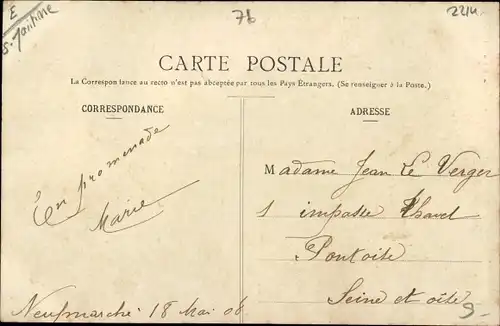 E
S. Maritime
76
2214
CARTE POSTALE
La Correspondance au recto n'est pas acceptée par tous les Pays Étrangers. (Se renseigner à la Poste.)
CORRESPONDANCE
ADRESSE
En promenade
Marie
Neufmarché 18 Mai 08
Madame Jean Le Verger
1 impasse
Pontoise
Seine et oise
9